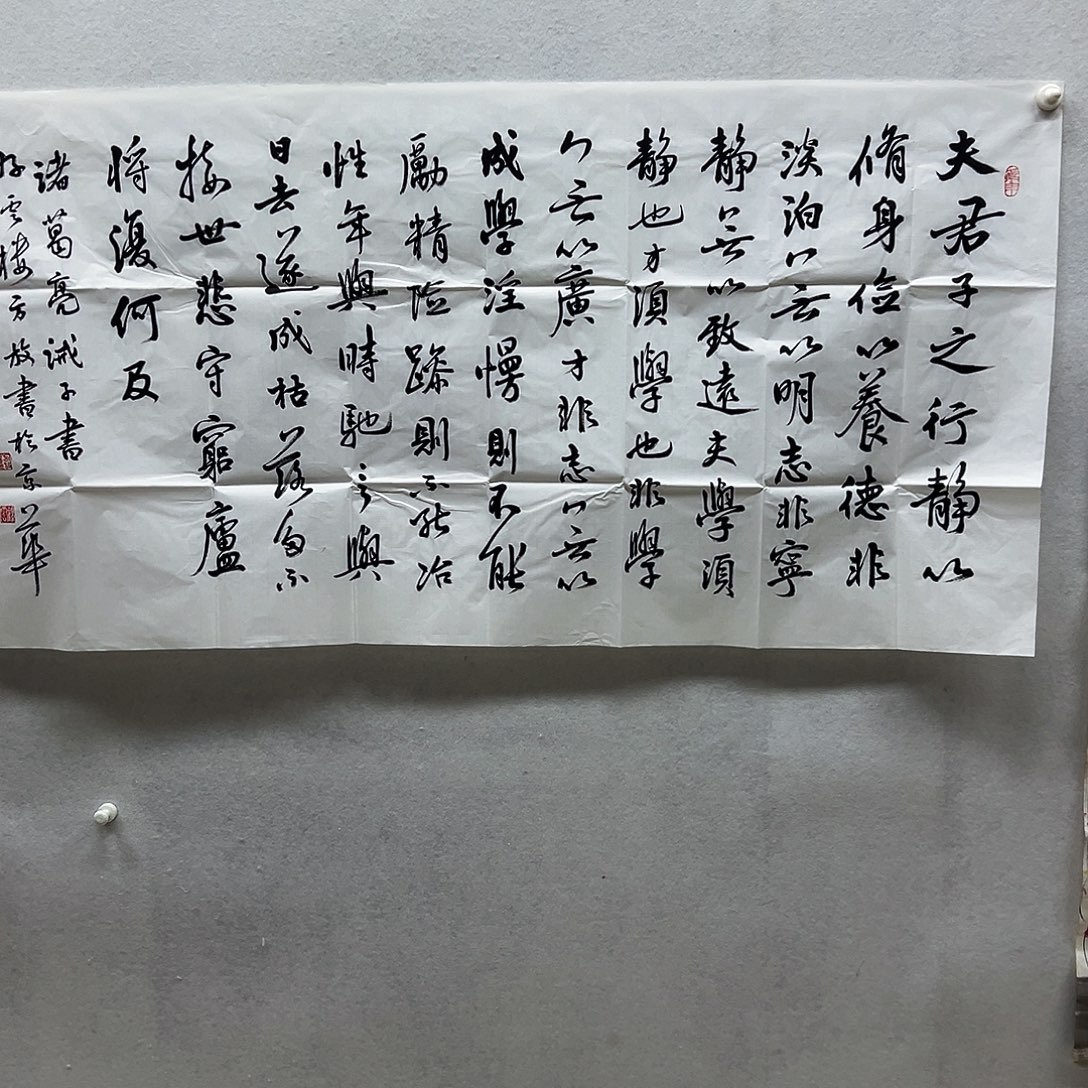 夫君子之行静以
脩身俭以養德非
淡泊無以明志非寧
静無以致遠夫學須
静也才須學也非學
無以廣才非志無以
成學淫慢則不能
勵精险躁則不能冶
性年與時馳意與
日去遂成枯落多不
接世悲守窮廬
将復何及
諸葛亮诫子書
雲樓方放書於京華